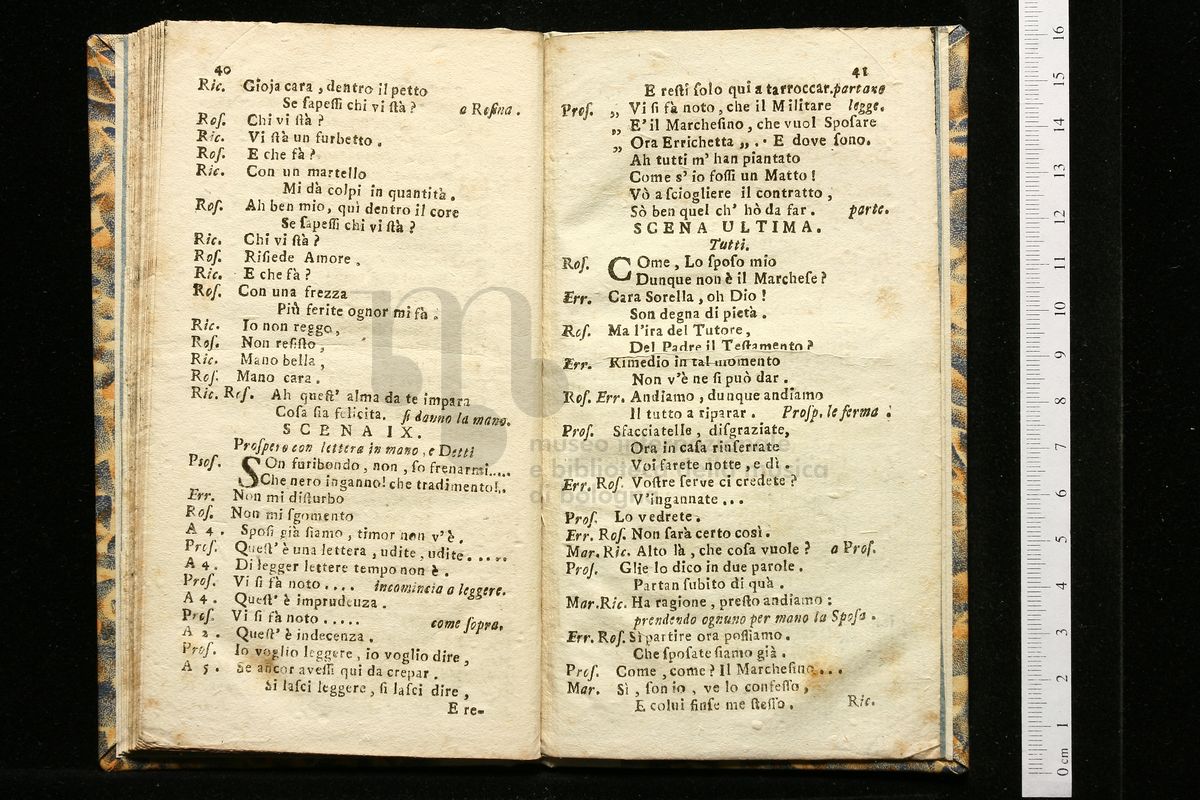 40
Ric. Gioja cara , dentro il petto
Se sapessi chi vi stà ? a Rosina .
Ros. Chi vi stà ?
Ric. Vi stà un furbetto .
Ros. E che fà ?
Ric. Con un martello
Mi dà colpi in quantità .
Ros. Ah ben mio , qui dentro il core
Se sapessi chi vi stà ?
Ric. Chi vi stà ?
Ros. Risiede Amore .
Ric. E che fà ?
Ros. Con una frezza
Più ferite ognor mi fà .
Ric. Io non reggo ,
Ros. Non resisto ,
Ric. Mano bella ,
Ros. Mano cara .
Ric. Ros. Ah quest' alma da te impara
Cosa sia felicita. si danno la mano.
SCENA IX.
Prospero con lettera in mano , e Detti
Pros. SOn furibondo , non , so frenarmi.....
Che nero inganno! che tradimento!..
Err. Non mi disturbo
Ros. Non mi sgomento
A 4. Sposi già siamo , timor non v'è .
Pros. Quest' è una lettera , udite , udite.....
A 4. Di legger lettere tempo non è .
Pros. Vi si fà noto .... incomincia a leggere.
A 4. Quest' è imprudenza .
Pros. Vi si fà noto ..... come sopra.
A 2. Quest' è indecenza .
Pros. Io voglio leggere , io voglio dire ,
A 5. Se ancor avessi qui da crepar .
Si lasci leggere , si lasci dire ,
E re-
41
E resti solo qui a tarroccar. partano
Pros. „ Vi si fà noto , che il Militare legge.
„ E' il Marchesino , che vuol Sposare
„ Ora Errichetta „ . . E dove sono.
Ah tutti m' han piantato
Come s' io fossi un Matto !
Vò a sciogliere il contratto ,
Sò ben quel ch' hò da far . parte.
SCENA ULTIMA.
Tutti.
Ros. COme , Lo sposo mio
Dunque non è il Marchese ?
Err. Cara Sorella , oh Dio !
Son degna di pietà .
Ros. Ma l'ira del Tutore ,
Del Padre il Testamento ?
Err. Rimedio in tal momento
Non v'è ne si può dar .
Ros. Err. Andiamo , dunque andiamo
Il tutto a riparar . Prosp. le ferma .
Pros. Sfacciatelle , disgraziate,
Ora in casa rinserrate
Voi sarete notte , e dì .
Err. Ros. Vostre serve ci credete ?
V'ingannate ...
Pros. Lo vedrete .
Err. Ros. Non sarà certo così .
Mar. Ric. Alto là , che cosa vuole ? a Pros.
Pros. Glie lo dico in due parole .
Partan subito di quà .
Mar. Ric. Ha ragione , presto andiamo :
prendendo ognuno per mano la Sposa .
Err. Ros. Sì partire ora possiamo .
Che sposate siamo già .
Pros. Come , come ? Il Marchesino ...
Mar. Sì , son io , ve lo confesso ,
E colui finse me stesso .
Ric.
museo internazionale
e biblioteca della musica
di bologna
0 cm 1 2 3 4 5 6 7 8 9 10 11 12 13 14 15 16